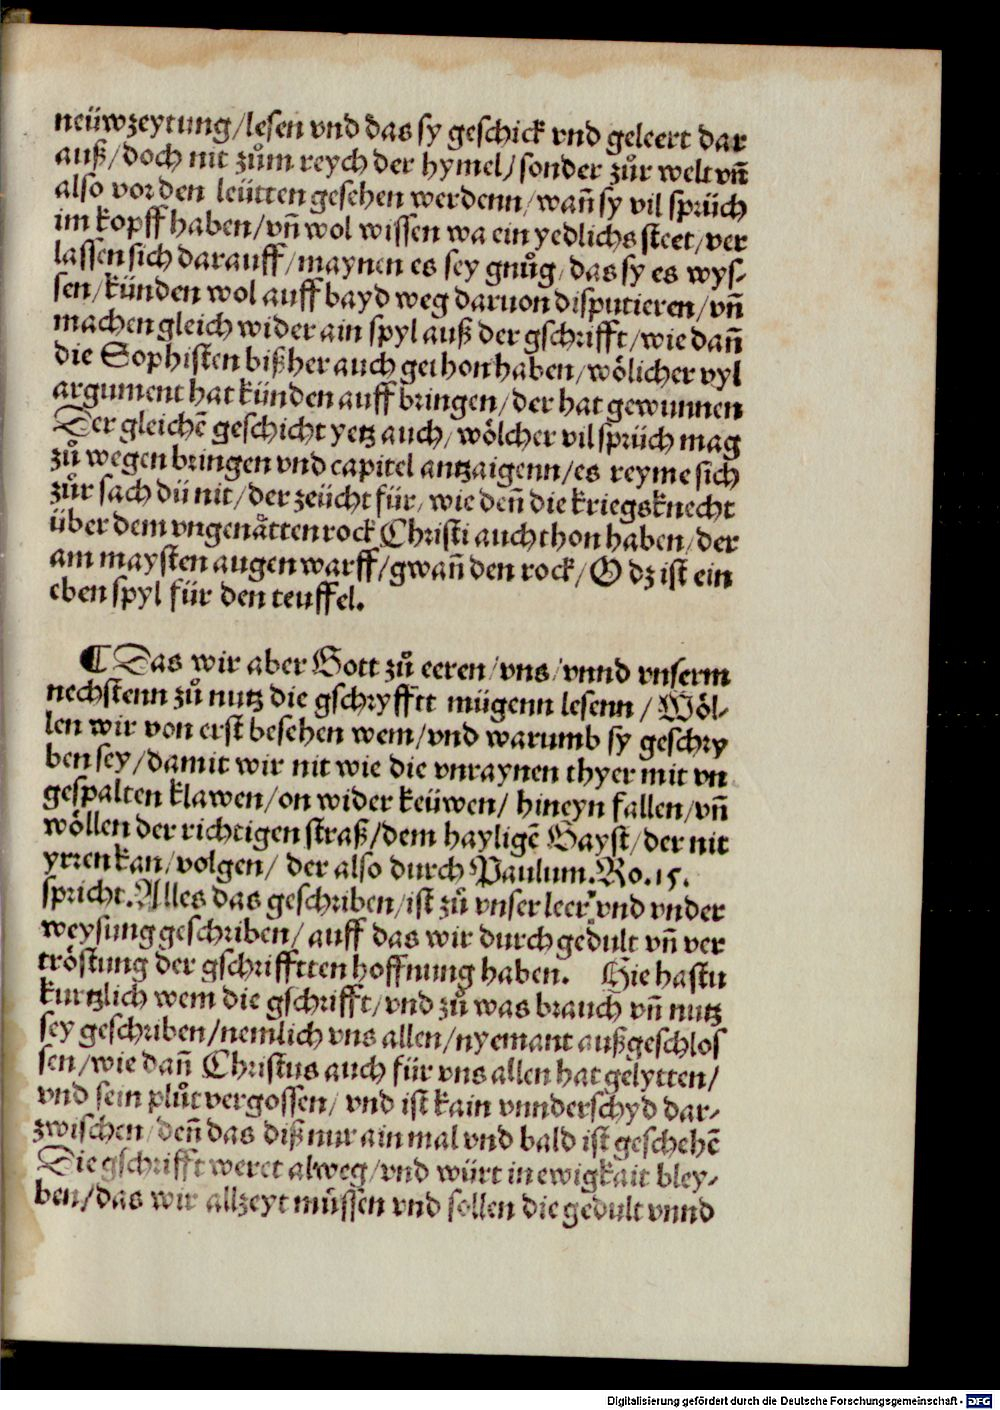 neüwzeytung/lesen vnd das sy geschick vnd geleert dar
auß/doch nit zům reych der hymel/sonder zůr welt vñ
also vor den leütten gesehen werdenn/wañ sy vil sprüch
im kopff haben/vñ wol wissen wa ein yedlichs steet/ver
lassen sich darauff/maynen es sey gnůg/das sy es wys-
sen/künden wol auff bayd weg daruon disputieren/vñ
machen gleich wider ain spyl auß der gschrifft/wie dañ
die Sophisten bißher auch gethon haben/wölicher vyl
argument hat künden auff bringen/der hat gewunnen
Der gleichē geschicht yetz auch/wölcher vil sprüch mag
zů wegen bringen vnd capitel antzaigenn/es reyme sich
zůr sach dü nit/der zeücht für/wie deñ die kriegsknecht
über dem vngenåtten rock Christi auch thon haben/der
am maysten augen warff/gwañ den rock/O dz ist ein
eben spyl für den teuffel.

¶ Das wir aber Gott zů eeren/vns/vnnd vnserm
nechstenn zů nutz die gschryfftt mügenn lesenn/Wöl-
len wir von erst besehen wem/vnd warumb sy geschry
ben sey/damit wir nit wie die vnraynen thyer mit vn
gespalten klawen/on wider keüwen/ hineyn fallen/vñ
wöllen der richtigen straß/dem hayligē Gayst/der nit
yrren kan/volgen/ der also durch Paulum.Ro.15.
spricht.Alles das geschriben/ist zů vnser leer vnd vnder
weysung geschriben/ auff das wir durch gedult vñ ver
tröstung der gschrifftten hoffnung haben. Hie hastu
kurtzlich wem die gschrifft/vnd zů was brauch vñ nutz
sey geschriben/nemlich vns allen/nyemant außgeschlos
sen/wie dañ Christus auch für vns allen hat gelytten/
vnd sein plůt vergossen/ vnd ist kain vnnderschyd dar-
zwischen/deñ das diß nur ain mal vnd bald ist geschehē
Die gschrifft weret alweg/vnd würt in ewigkait bley-
ben/das wir allzeyt müssen vnd sollen die gedult vnnd
Digitalisierung gefördert durch die Deutsche Forschungsgemeinschaft - DFG